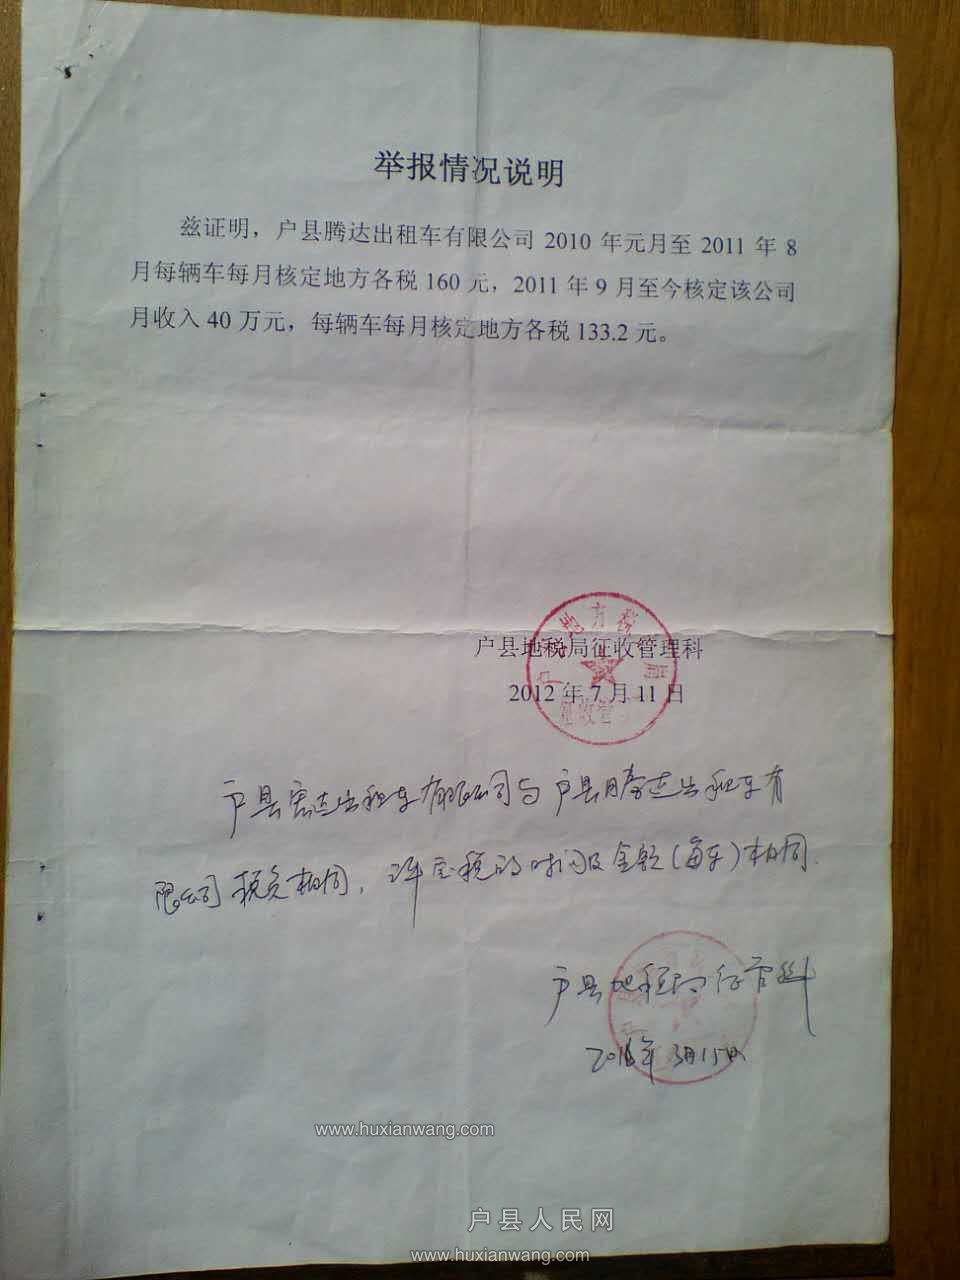 举报情况说明
兹证明，户县腾达出租车有限公司 2010 年元月至 2011 年 8
月每辆车每月核定地方各税 160 元，2011 年 9 月至今核定该公司
月收入 40 万元，每辆车每月核定地方各税 133.2 元。
地方税
户县地税局征收管理科
2012 年 7 月 11 日
征收管
户县宏达出租车有限公司与户县腾达出租车有
限公司税负相同，评定税的时间及金额(每车)相同.
户县地税局征管科
3月15日
www.huxianwang.com
户县人民网
www.huxianwang.com